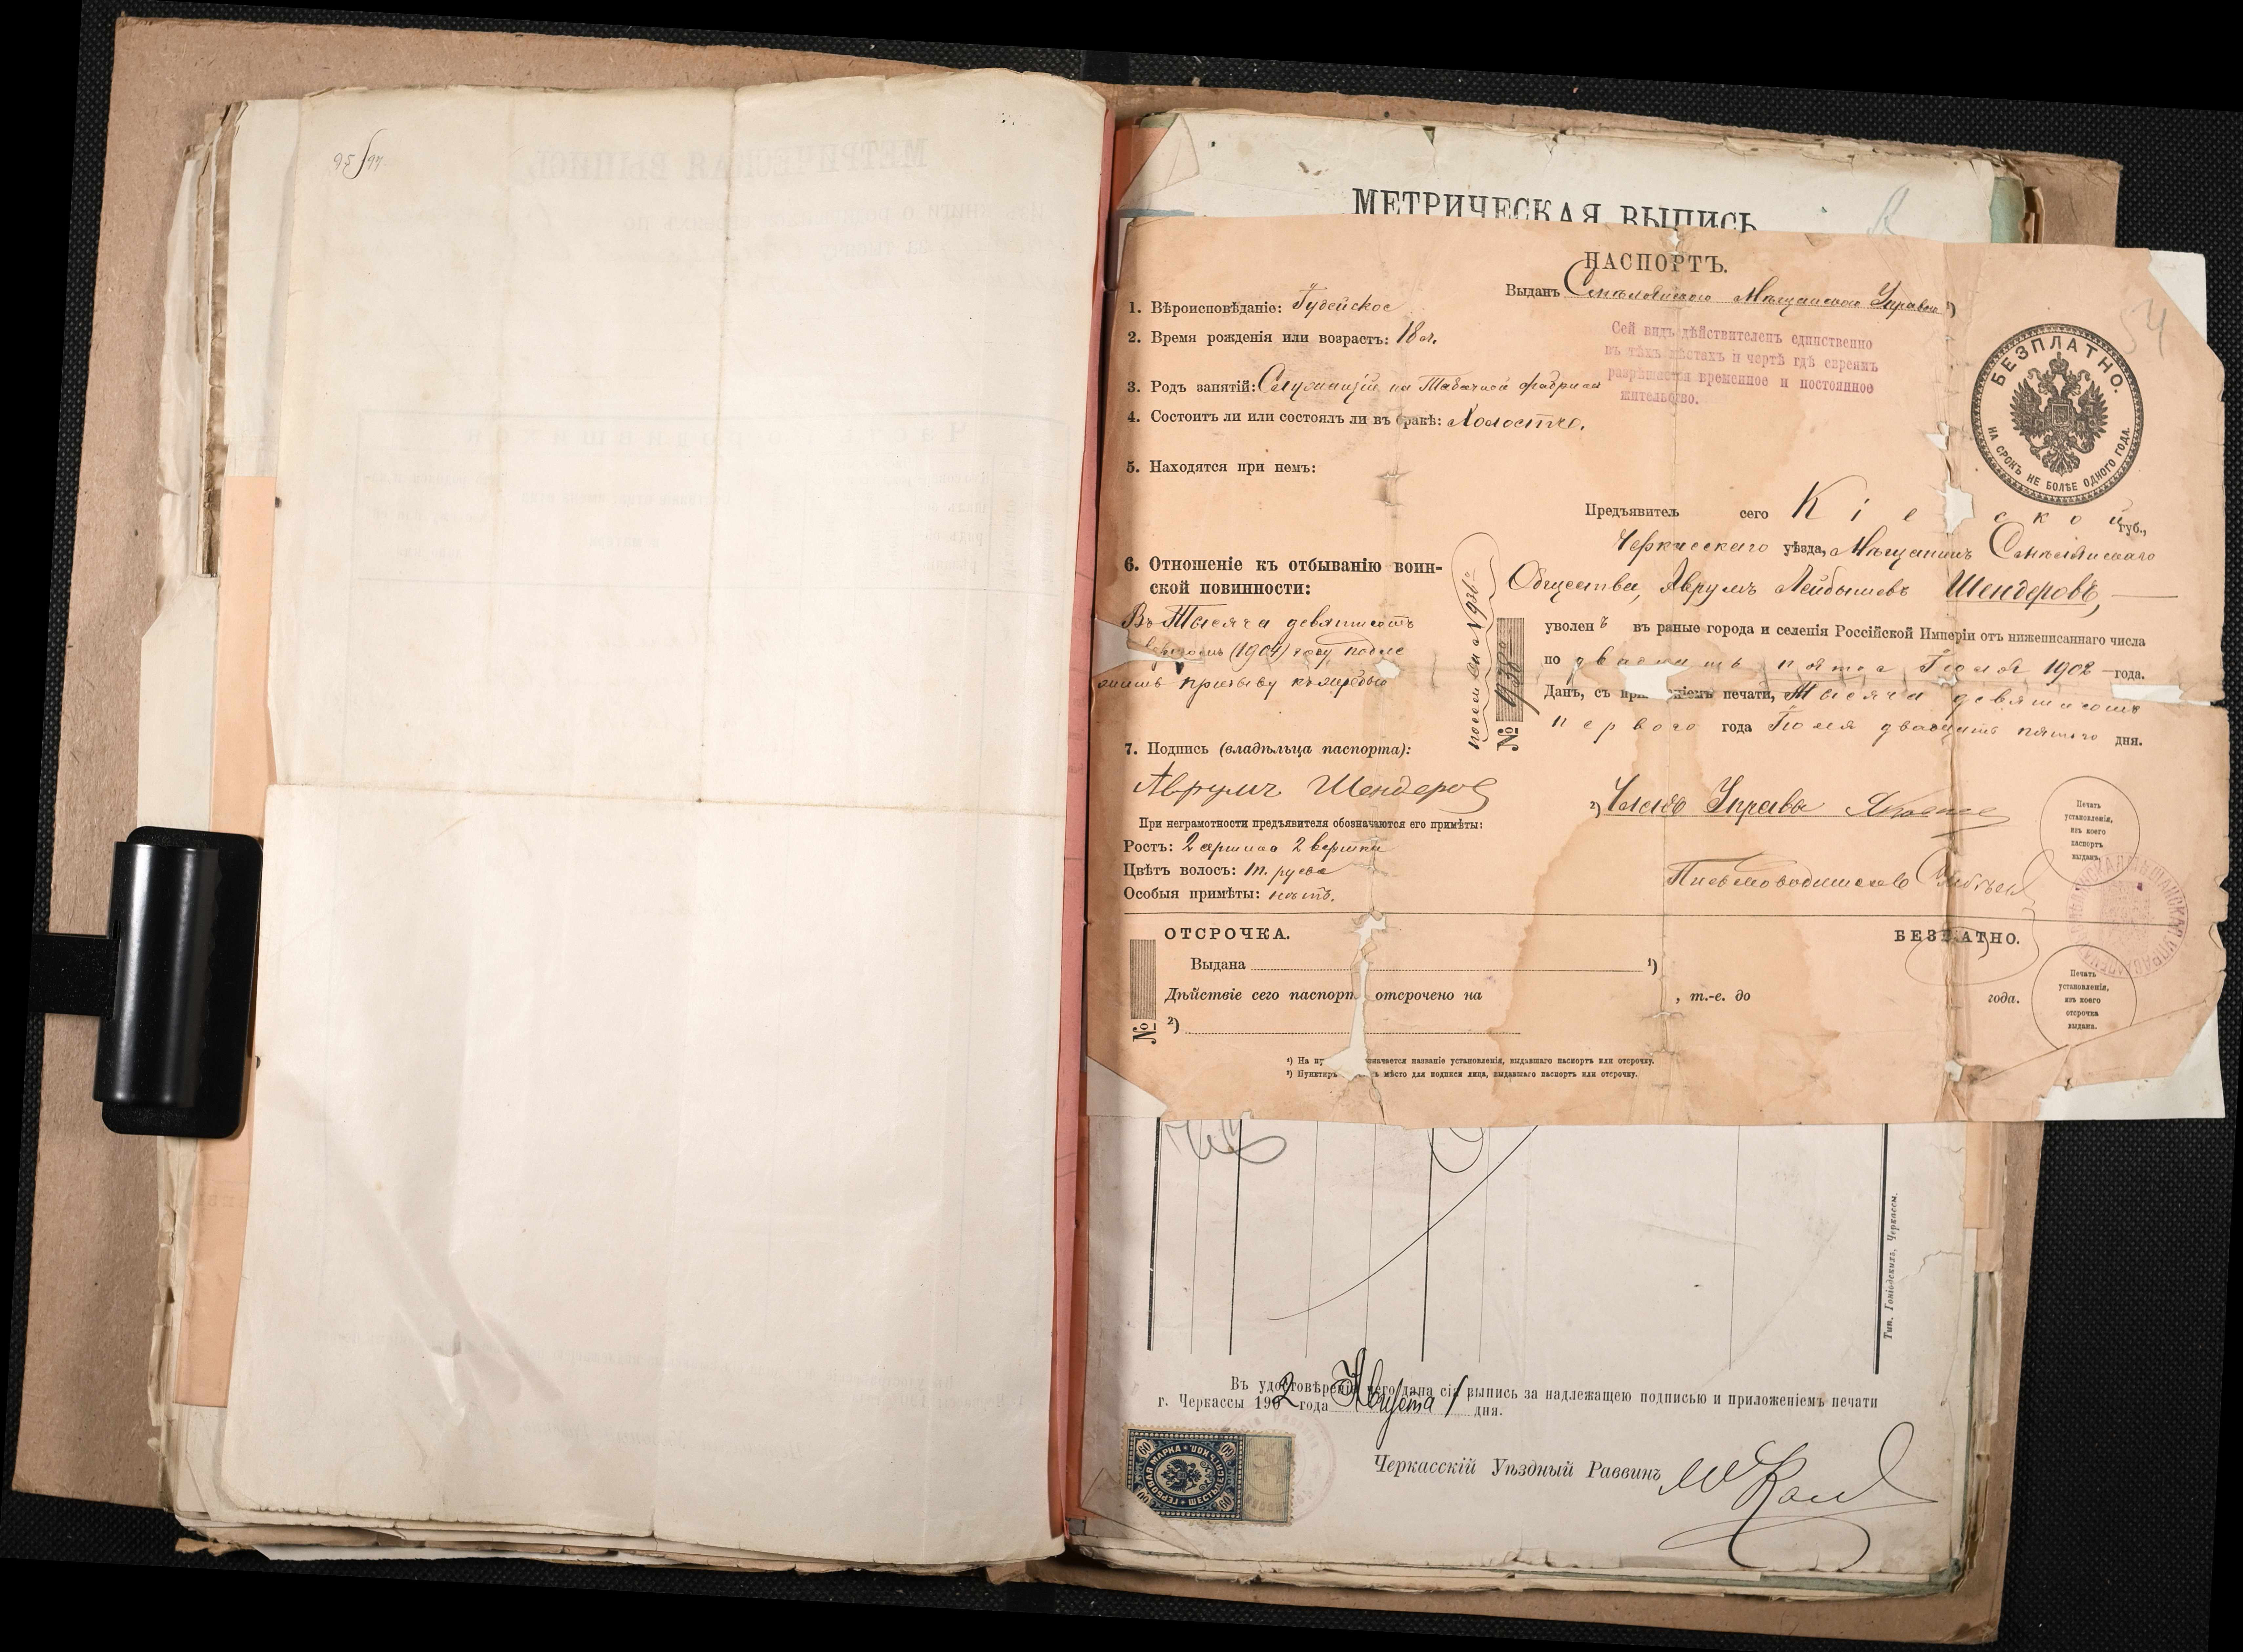 95 97
МЕТРИЧЕСКАЯ ВЫПИСЬ
54
ПАСПОРТЪ.
Выданъ Смѣлянскою Мѣщанскою Управою ¹)
1. Вѣроисповѣданіе: Іудейское
2. Время рожденія или возрастъ: 18 л.
3. Родъ занятій: Служащій на Табачной фабрикѣ
4. Состоитъ ли или состоялъ ли въ бракѣ: Холостъ.
5. Находятся при немъ:
6. Отношеніе къ отбыванію воин-
ской повинности:
Въ Тысяча девятьсотъ
(1904) году подле
житъ призыву къ жеребью
7. Подпись (владѣльца паспорта):
Аврумъ Шендеров
При неграмотности предъявителя обозначаются его примѣты:
Ростъ: 2 аршина 2 вершка
Цвѣтъ волосъ: т. русые
Особыя примѣты: нѣтъ.
Сей видъ дѣйствителенъ единственно
въ тѣхъ мѣстахъ и чертѣ гдѣ евреямъ
разрѣшается временное и постоянное
жительство.
БЕЗПЛАТНО.
НА СРОКЪ НЕ БОЛѢЕ ОДНОГО ГОДА.
Предъявитель сего Кіевской губ.,
Черкасскаго уѣзда, Мѣщанинъ Смѣлянскаго
Общества, Аврумъ Лейбышевъ Шендеровъ,
уволенъ въ раные города и селенія Россійской Имперіи отъ нижеписаннаго числа
по двадцать пятое Іюля 1902 года.
Данъ, съ приложеніемъ печати, Тысяча девятьсотъ
перваго года Іюля двадцать пятаго дня.
№ 938
²) Членъ Управы
Письмоводитель
Печать
установленія,
изъ коего
паспортъ
выданъ.
ОТСРОЧКА.
БЕЗПЛАТНО.
Выдана ¹)
Дѣйствіе сего паспорта отсрочено на , т.-е. до года.
№
²)
Печать
установленія,
изъ коего
отсрочка
выдана.
¹) На означается названіе установленія, выдавшаго паспортъ или отсрочку.
²) Пунктиръ мѣсто для подписи лица, выдавшаго паспортъ или отсрочку.
Тип. Гоніодскихъ, Черкассы.
Въ удостовѣреніе чего дана сія выпись за надлежащею подписью и приложеніемъ печати
г. Черкассы 1902 года Августа 1 дня.
Черкасскій Уѣздный Раввинъ
ГЕРБОВАЯ МАРКА ШЕСТЬДЕСЯТЪ КОП.
60